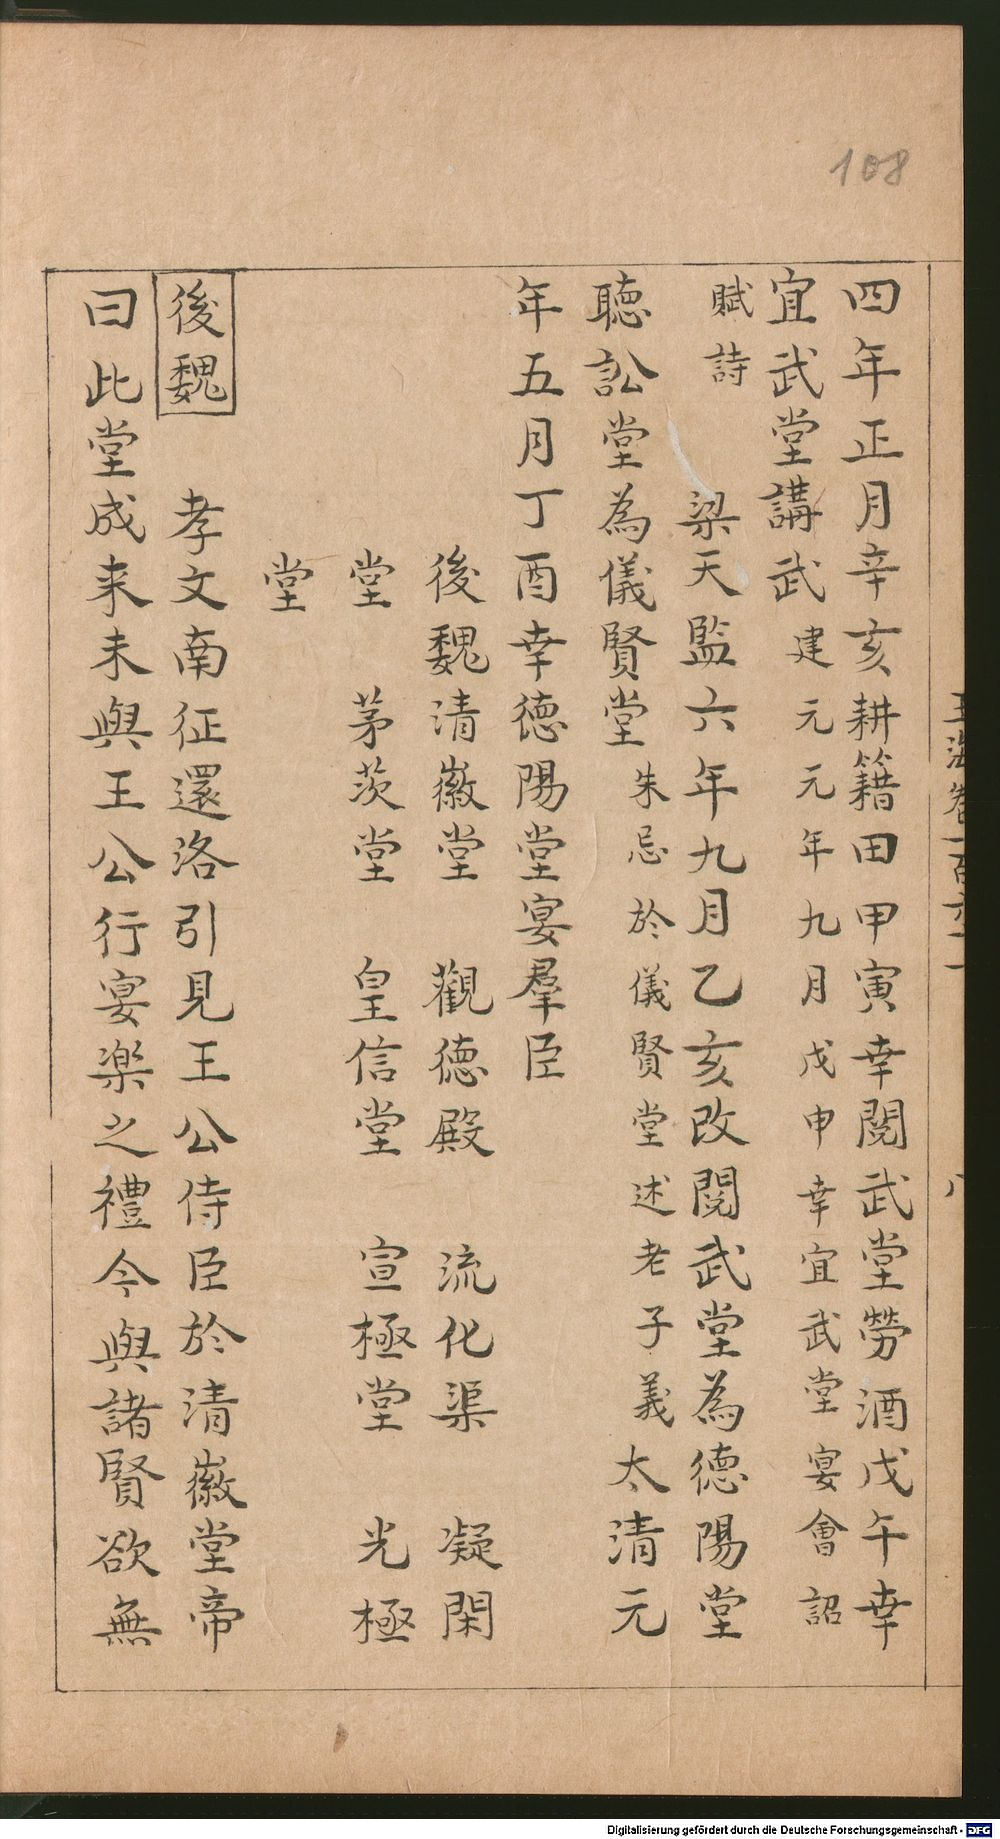 108
玉海卷一百六十一 八
四年正月辛亥耕籍田甲寅幸閱武堂勞酒戊午幸
宣武堂講武建元元年九月戊申幸宣武堂宴會詔
賦詩 梁天監六年九月乙亥改閱武堂為德陽堂
聽訟堂為儀賢堂朱忌於儀賢堂述老子義太清元
年五月丁酉幸德陽堂宴羣臣
後魏清徽堂 觀德殿 流化渠 凝閑
堂 茅茨堂 皇信堂 宣極堂 光極
堂
後魏 孝文南征還洛引見王公侍臣於清徽堂帝
曰此堂成来未與王公行宴楽之禮今與諸賢欲無
Digitalisierung gefördert durch die Deutsche Forschungsgemeinschaft - DFG